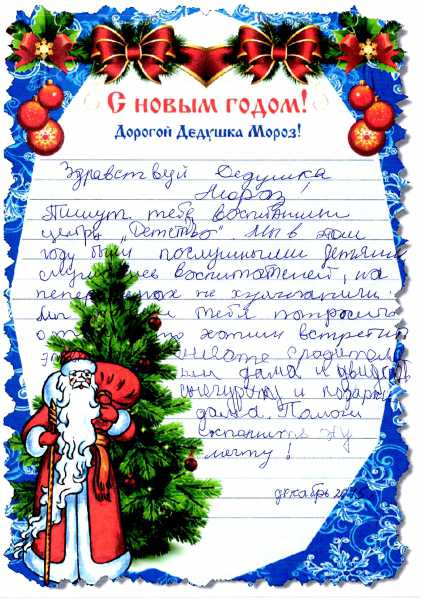 С новым годом!
Дорогой Дедушка Мороз!
Здравствуй Дедушка
Мороз!
Пишут тебе воспитанники
центра „Детство". Мы в этом
году были послушными детьми
слушались воспитателей, на
переменах не хулиганили.
Мы тебя попросить
о хотим встретить
вместе с родителями
дома и увидеть
снегурочку и подарки
дома. Помоги
исполнить эту
мечту!
декабрь